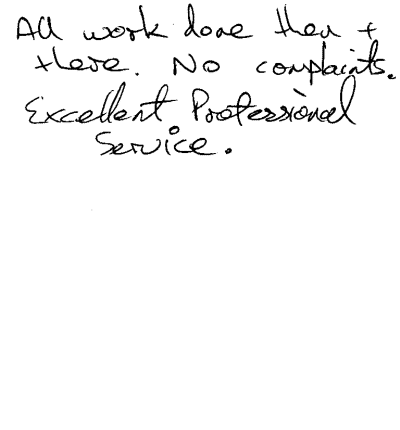 All work done then +
there. No complaints.
Excellent Professional
Service.